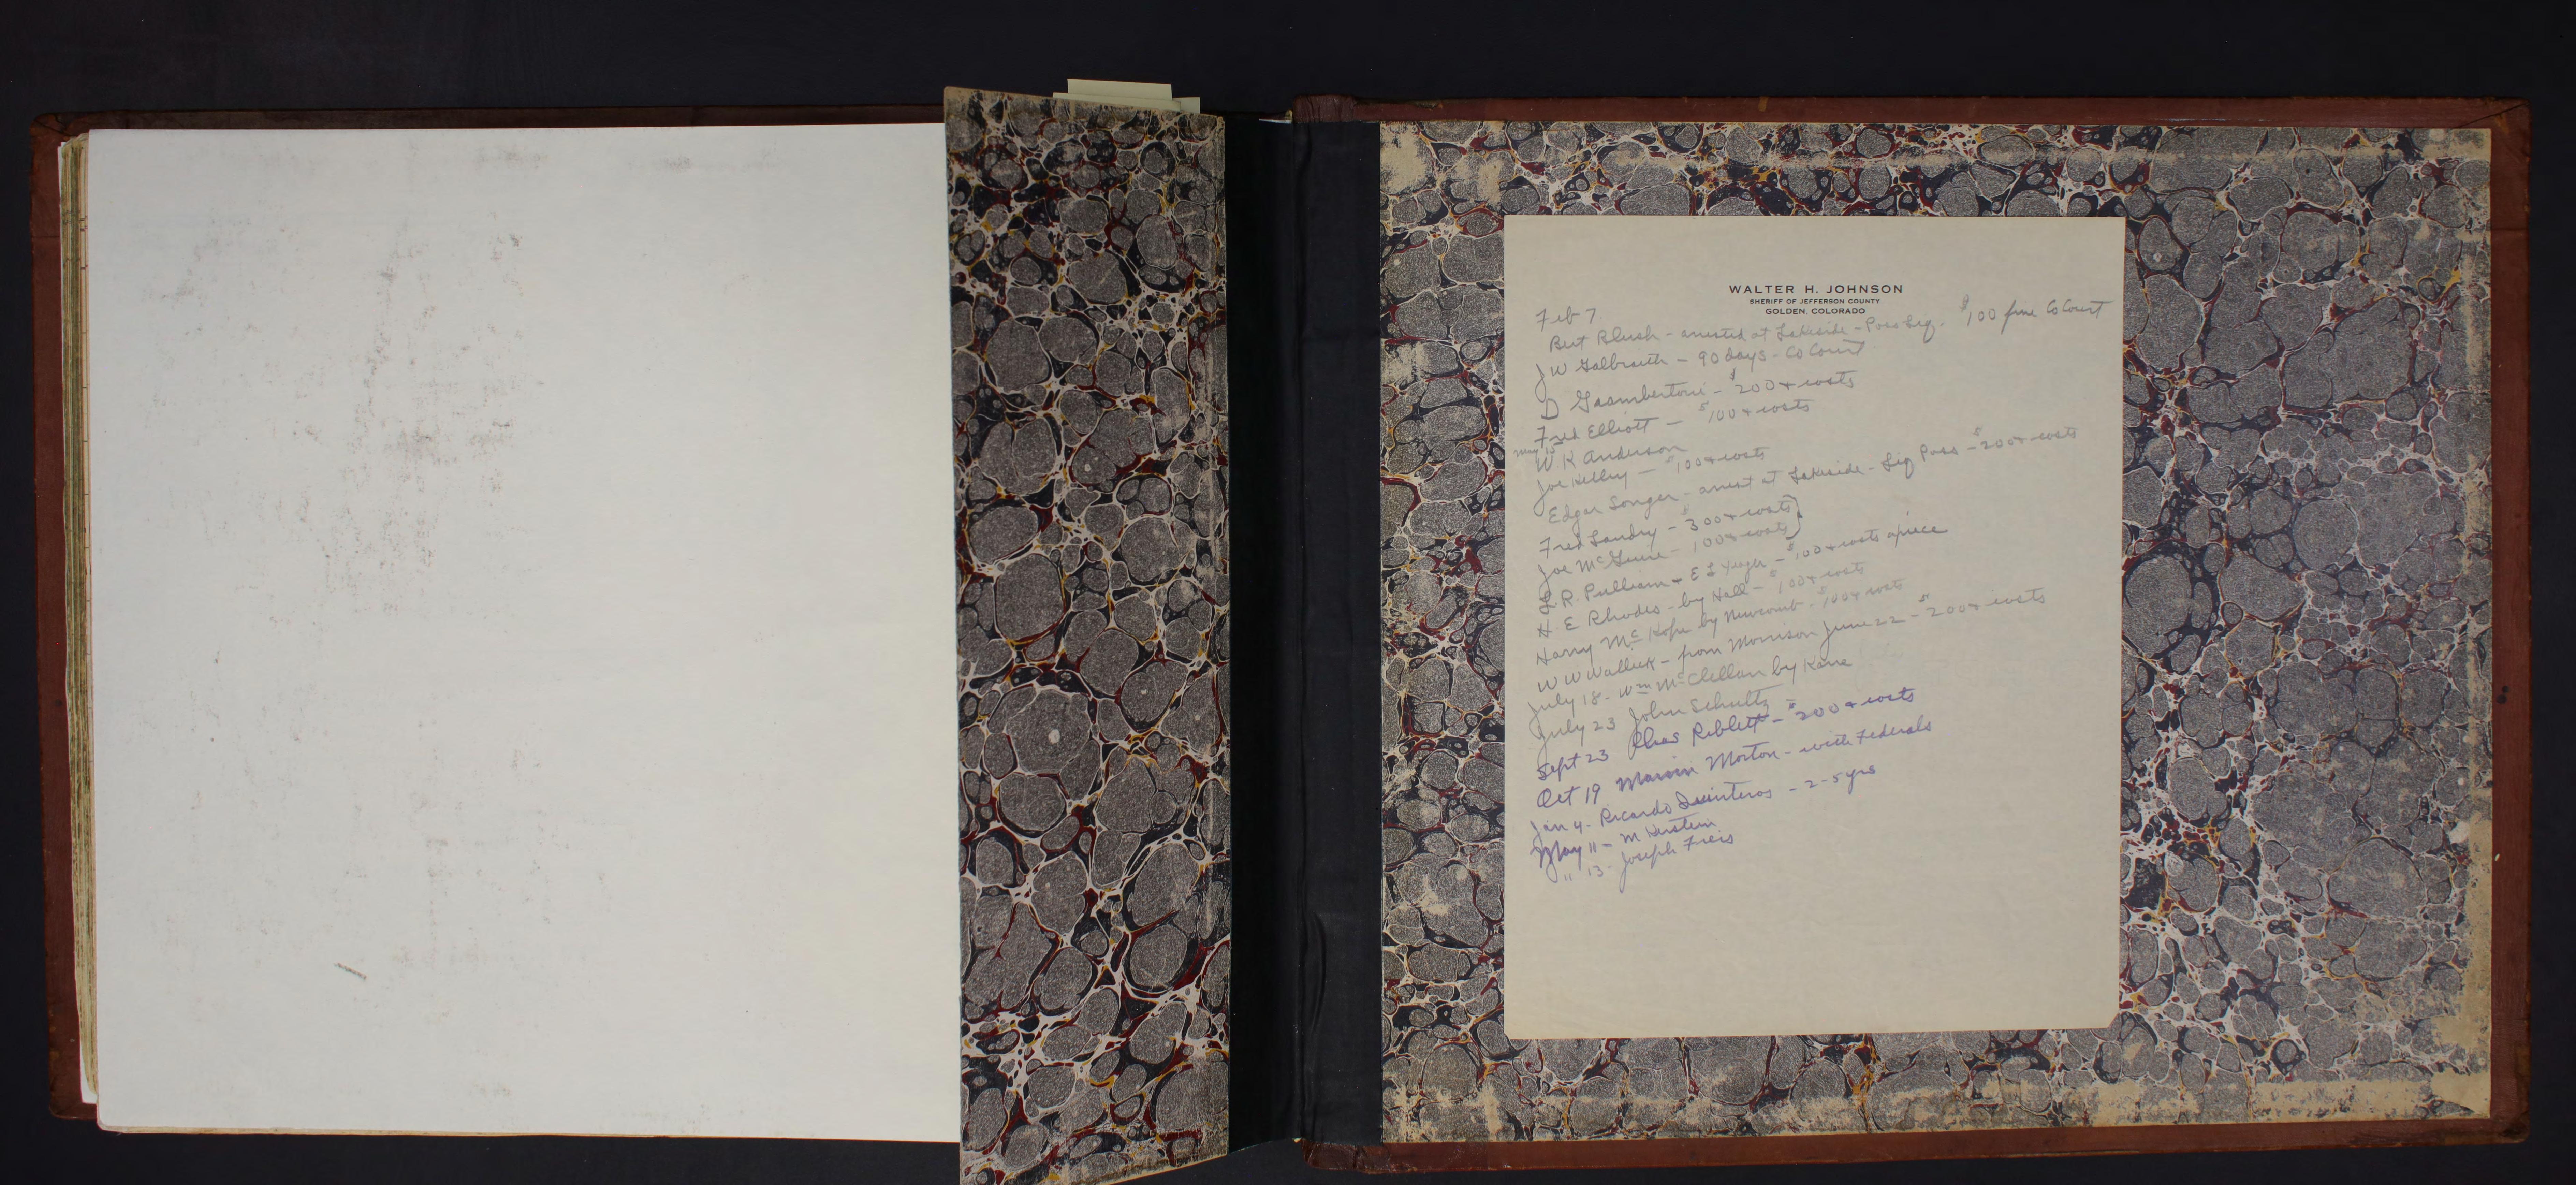 WALTER H. JOHNSON
SHERIFF OF JEFFERSON COUNTY
GOLDEN, COLORADO
Feb 7
Bert Blush - arrested at Lakeside - Poss Liq. $100 fine Co Court
J W Galbraith - 90 days - Co Court
D Giambertoni - $200 + costs
Fred Elliott - $100 + costs
May
W. K Anderson
Joe Kelley - $100 + costs
Edgar Songer - arrest at Lakeside - Liq Poss - $200 + costs
Fred Landry - $300 + costs
Joe McGuire - 100 + costs
L. R. Pulliam + E L - $100 + costs apiece
H. E Rhodes - by Hall - $100 + costs
Harry Mc by Newcomb - $100 + costs
W W Wallick - from Morrison June 22 - $200 + costs
July 18 - Wm McClellan by Kane
July 23 John Schultz
Sept 23 Chas Riblett - $200 + costs
Oct 19 Marvin Morton - with Federals
Jan 4 - Ricardo Quinteros - 2-5 yrs
May 11 - M
" 13 - Joseph Freis